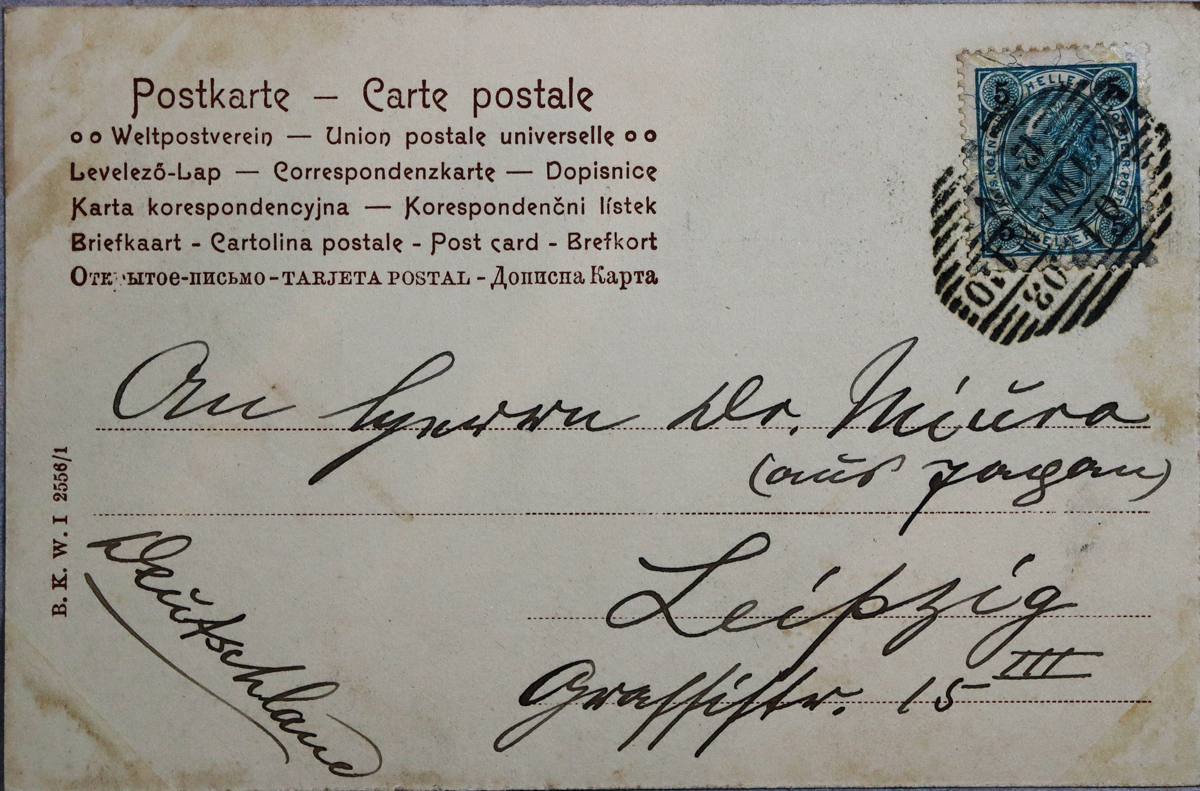 Postkarte – Carte postale
Weltpostverein — Union postale universelle
Levelező-Lap — Correspondenzkarte — Dopisnice
Karta korespondencyjna — Korespondenčni lístek
Briefkaart - Cartolina postale - Post card - Brefkort
Открытое-письмо - TARJETA POSTAL - Дописна Карта
5 HELLER
WIEN
An Herrn Dr. Miura
(aus Japan)
Leipzig
Grassistr. 15 III
Deutschland
B. K. W. I 2556/1